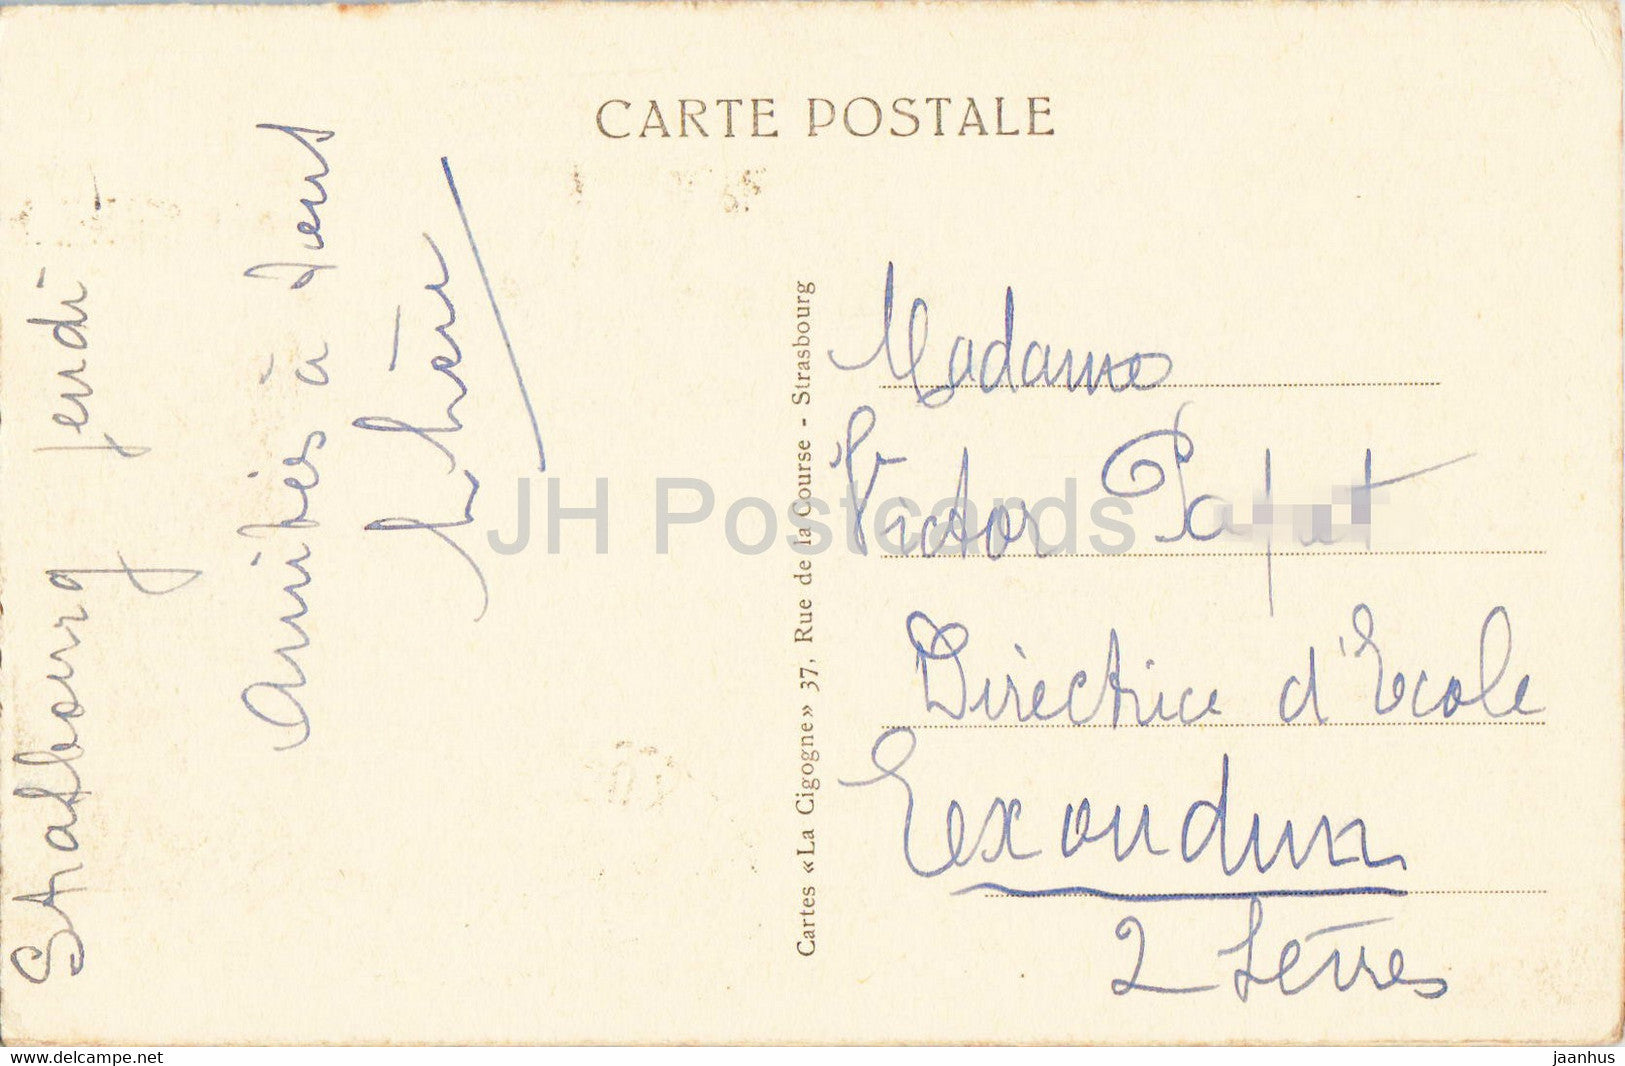 CARTE POSTALE
Strasbourg jeudi -
Amitiés à tous
Cartes «La Cigogne» 37, Rue de la Course - Strasbourg
Madame
Victor
Directrice d'Ecole
Exoudun
2 Sèvres
JH Postcards
delcampe.net
jaanhus